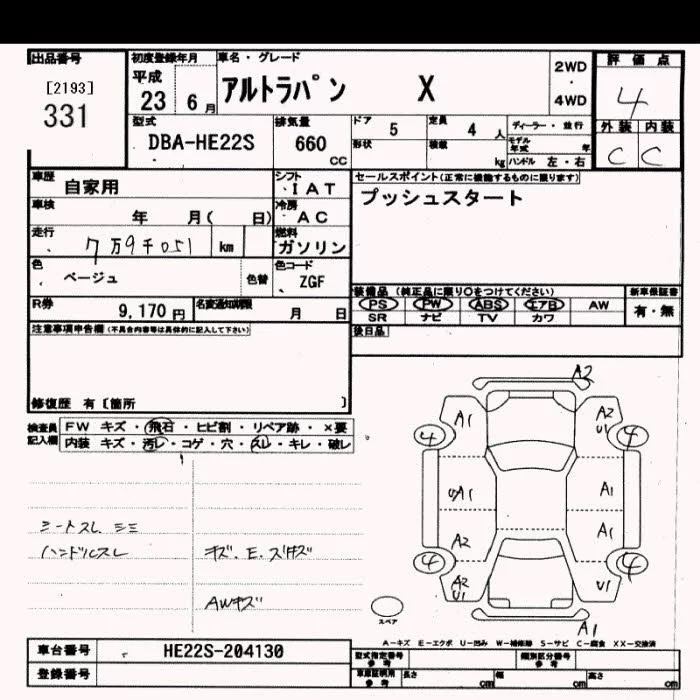 出品番号
[2193]
331
初度登録年月
平成
23 6 月
車名・グレード
アルトラパン X
2WD
・
4WD
評価点
4
外装 内装
C C
型式
DBA-HE22S
排気量
660
CC
ドア 5
定員 4 人
ディーラー・並行
形状
積載 kg
モデル年式 年
ハンドル 左・右
車歴 自家用
シフト IAT
セールスポイント(正常に機能するものに限ります)
プッシュスタート
車検 年 月( 日)
冷房 AC
走行 7万9千051 km
燃料 ガソリン
色 ベージュ 色替
色コード ZGF
装備品 (純正品に限り○をつけてください)
新車保証書
PS PW ABS エアB AW
有・無
SR ナビ TV カワ
R券 9,170 円
名変通知期限 月 日
後日品
注意事項申告欄(不具合内容等は具体的に記入して下さい)
修復歴 有〔箇所 〕
検査員記入欄
FW キズ・飛石・ヒビ割・リペア跡・×要
内装 キズ・汚レ・コゲ・穴・スレ・キレ・破レ
シートスレ シミ
ハンドルスレ
キズ.E.ズキズ
AWキズ
A2
A1 A2 U1
4 4
A1 A1
A1
A2
4 4
A2 U1 U1
A1
スペア
A-キズ E-エクボ U-凹み W-補修跡 S-サビ C-腐食 XX-交換済
車台番号 HE22S-204130
型式指定番号 参考
類別区分番号 参考
登録番号
車庫証明用 参考
長さ cm 幅 cm 高さ cm